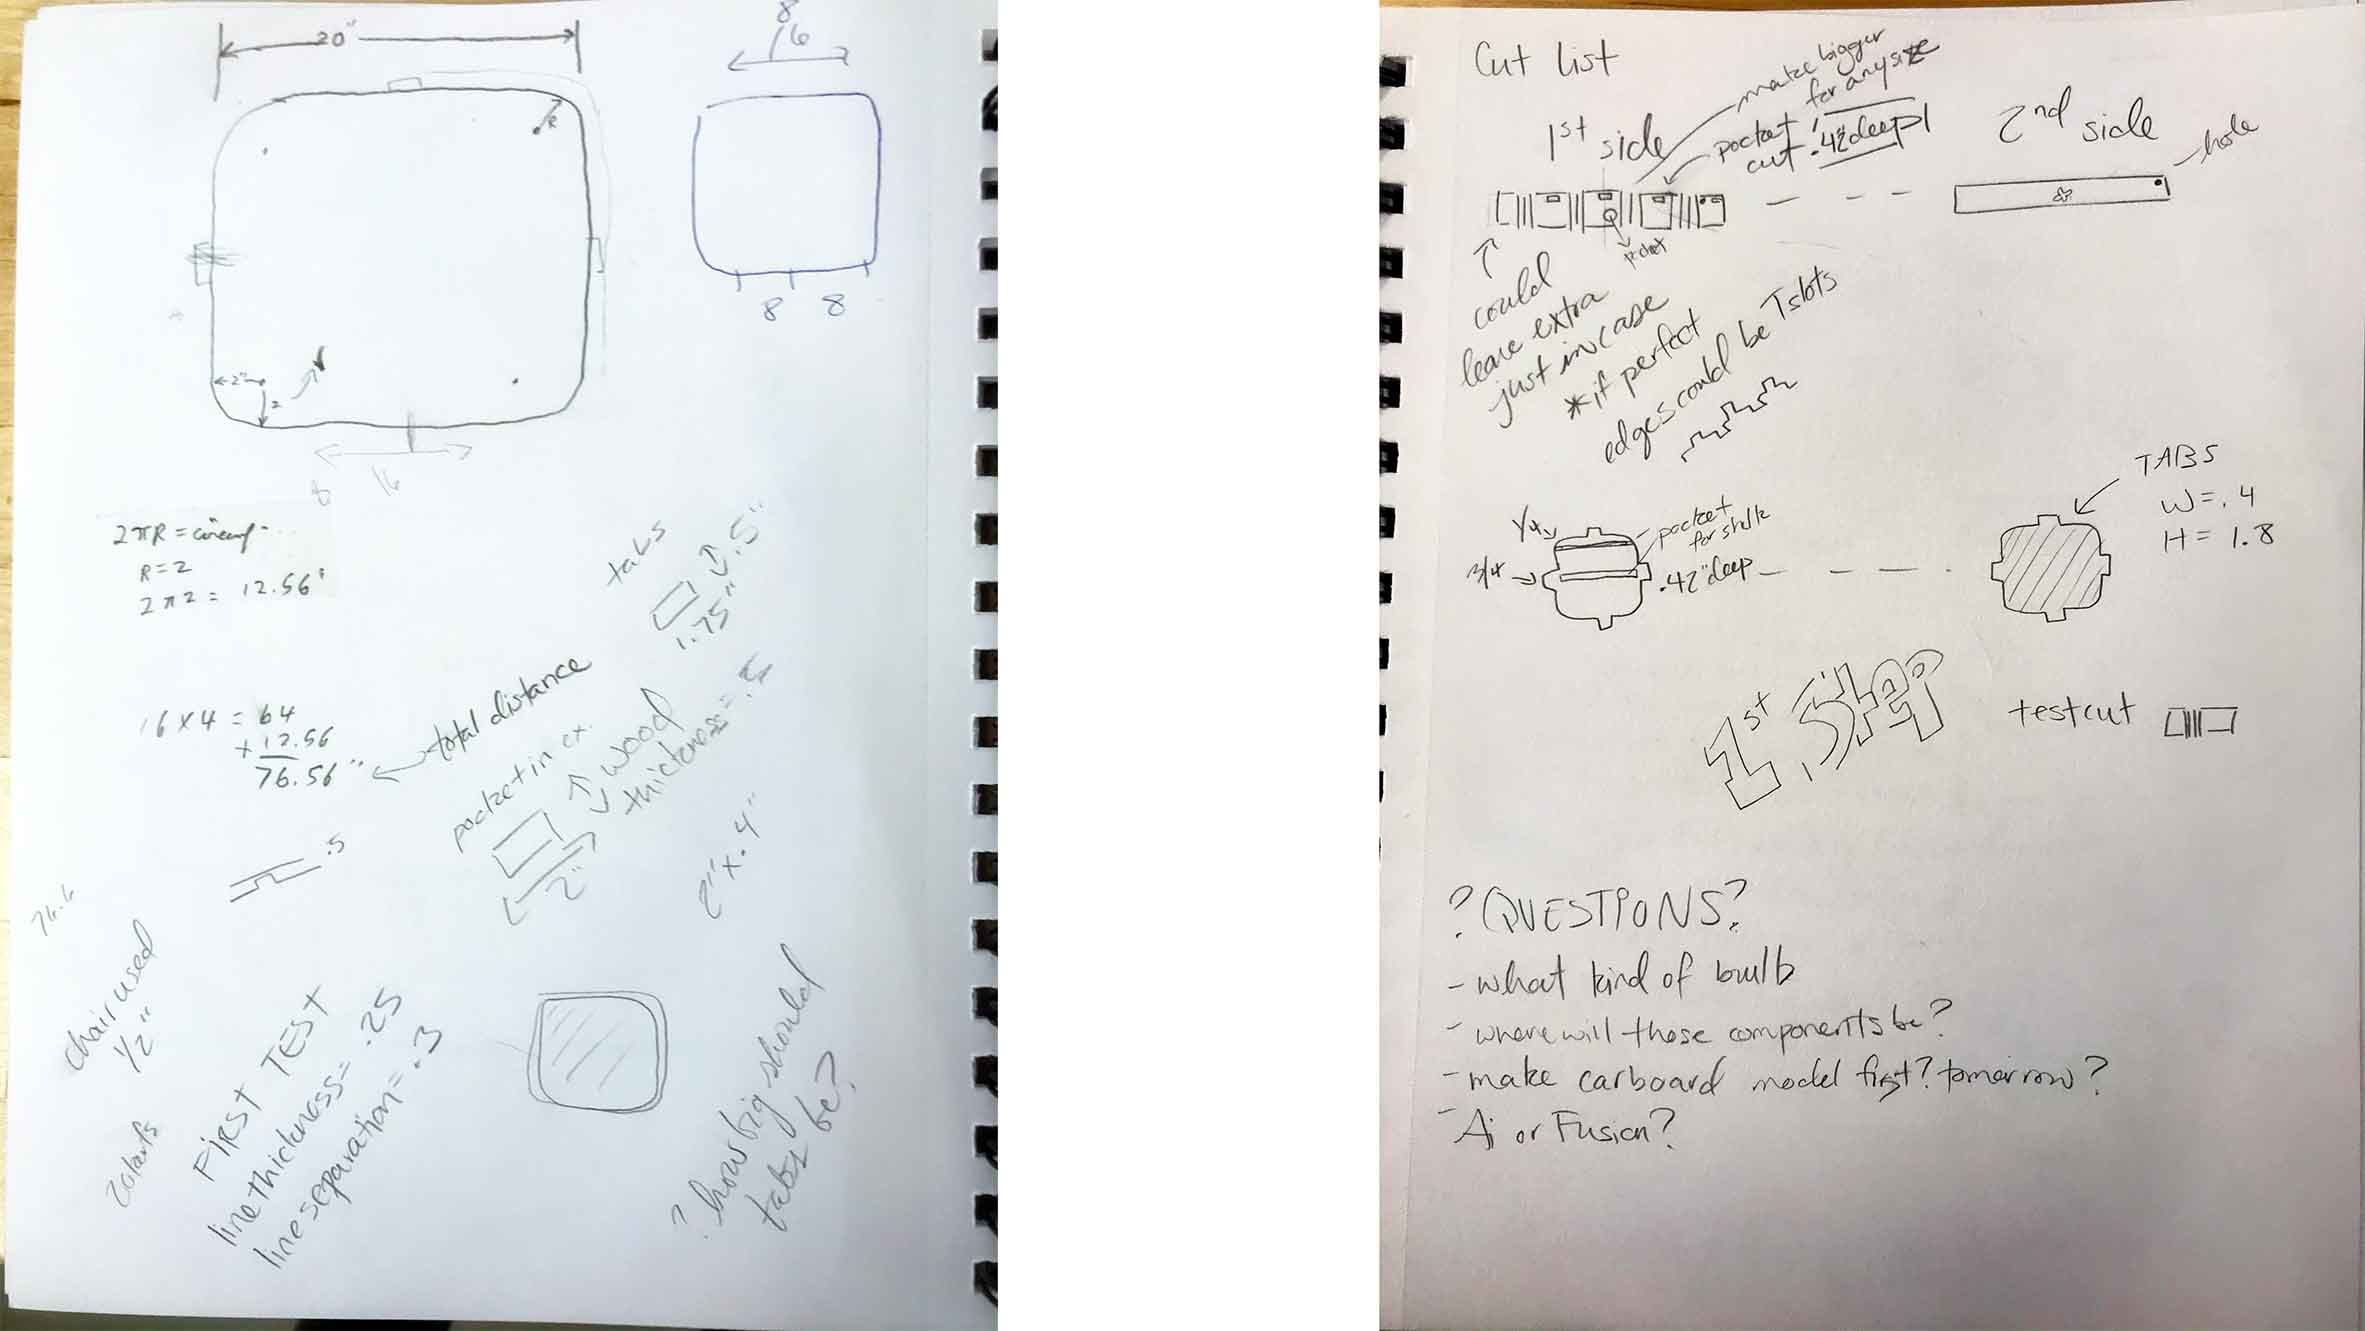 20"
R
2"
2
8
16
8
16
8 8
2πR = circumf
R=2
2π2 = 12.56"
16 x 4 = 64
x 12.56
76.56"
total distance
tabs
.5"
1.75"
pocket in ex.
wood
thickness = .5
2"
2" x .4"
.5
76.6
chair used
1/2"
FIRST TEST
line thickness = .25
line separation = .3
? how big should
tabs be?
Cut list
make bigger
for any size
1st side
pocket
cut .42" deep
2nd side
hole
pocket
could
leave extra
just in case
*if perfect
edges could be T slots
1/4
3/4
pocket
for shelf
.42" deep
TABS
W = .4
H = 1.8
1st Step
testcut
? QUESTIONS?
- what kind of bulb
- where will those components be?
- make carboard model first? tomorrow?
- Ai or Fusion?